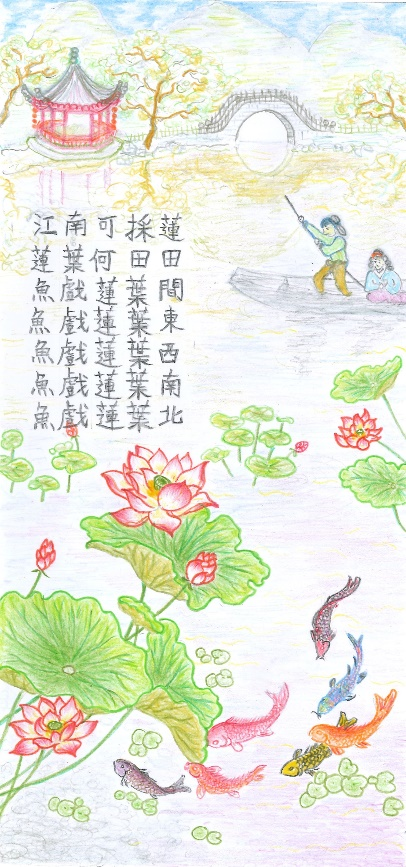 江南可採蓮
蓮葉何田田
魚戲蓮葉間
魚戲蓮葉東
魚戲蓮葉西
魚戲蓮葉南
魚戲蓮葉北